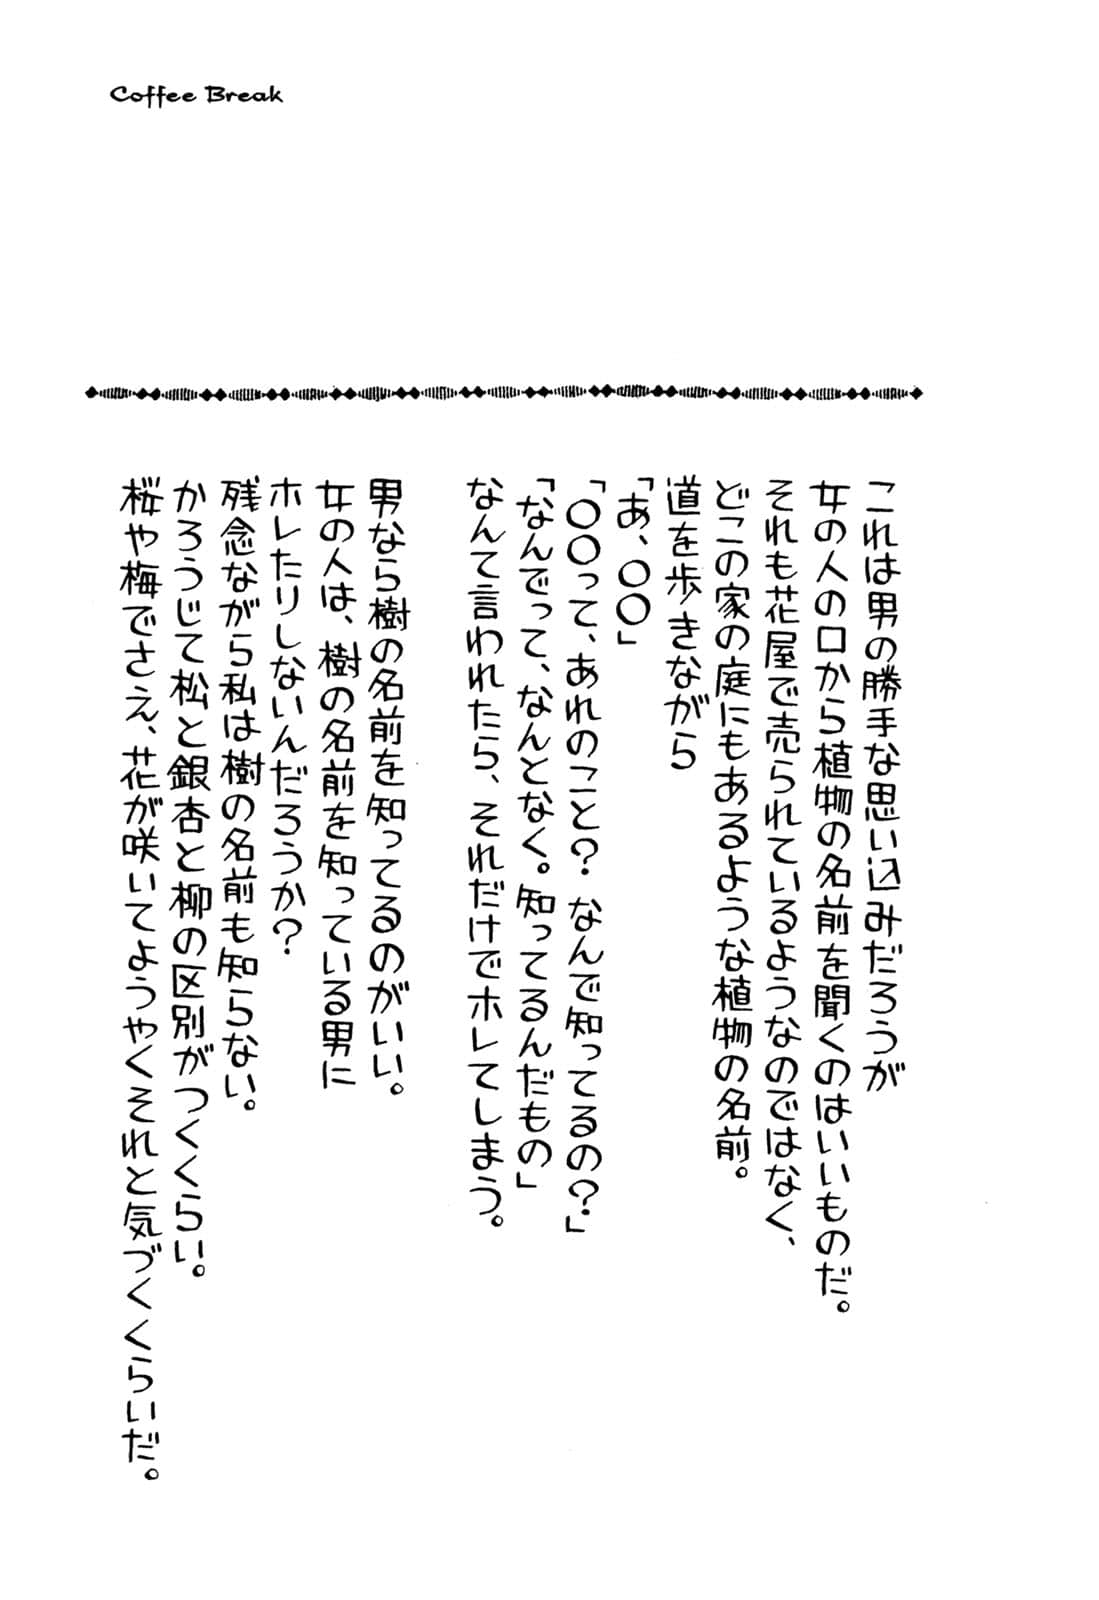 Coffee Break
これは男の勝手な思い込みだろうが
女の人の口から植物の名前を聞くのはいいものだ。
それも花屋で売られているようなのではなく、
どこの家の庭にもあるような植物の名前。
道を歩きながら
「あ、〇〇」
「〇〇って、あれのこと？ なんで知ってるの？」
「なんでって、なんとなく。知ってるんだもの」
なんて言われたら、それだけでホレてしまう。
男なら樹の名前を知ってるのがいい。
女の人は、樹の名前を知っている男に
ホレたりしないんだろうか？
残念ながら私は樹の名前も知らない。
かろうじて松と銀杏と柳の区別がつくくらい。
桜や梅でさえ、花が咲いてようやくそれと気づくくらいだ。